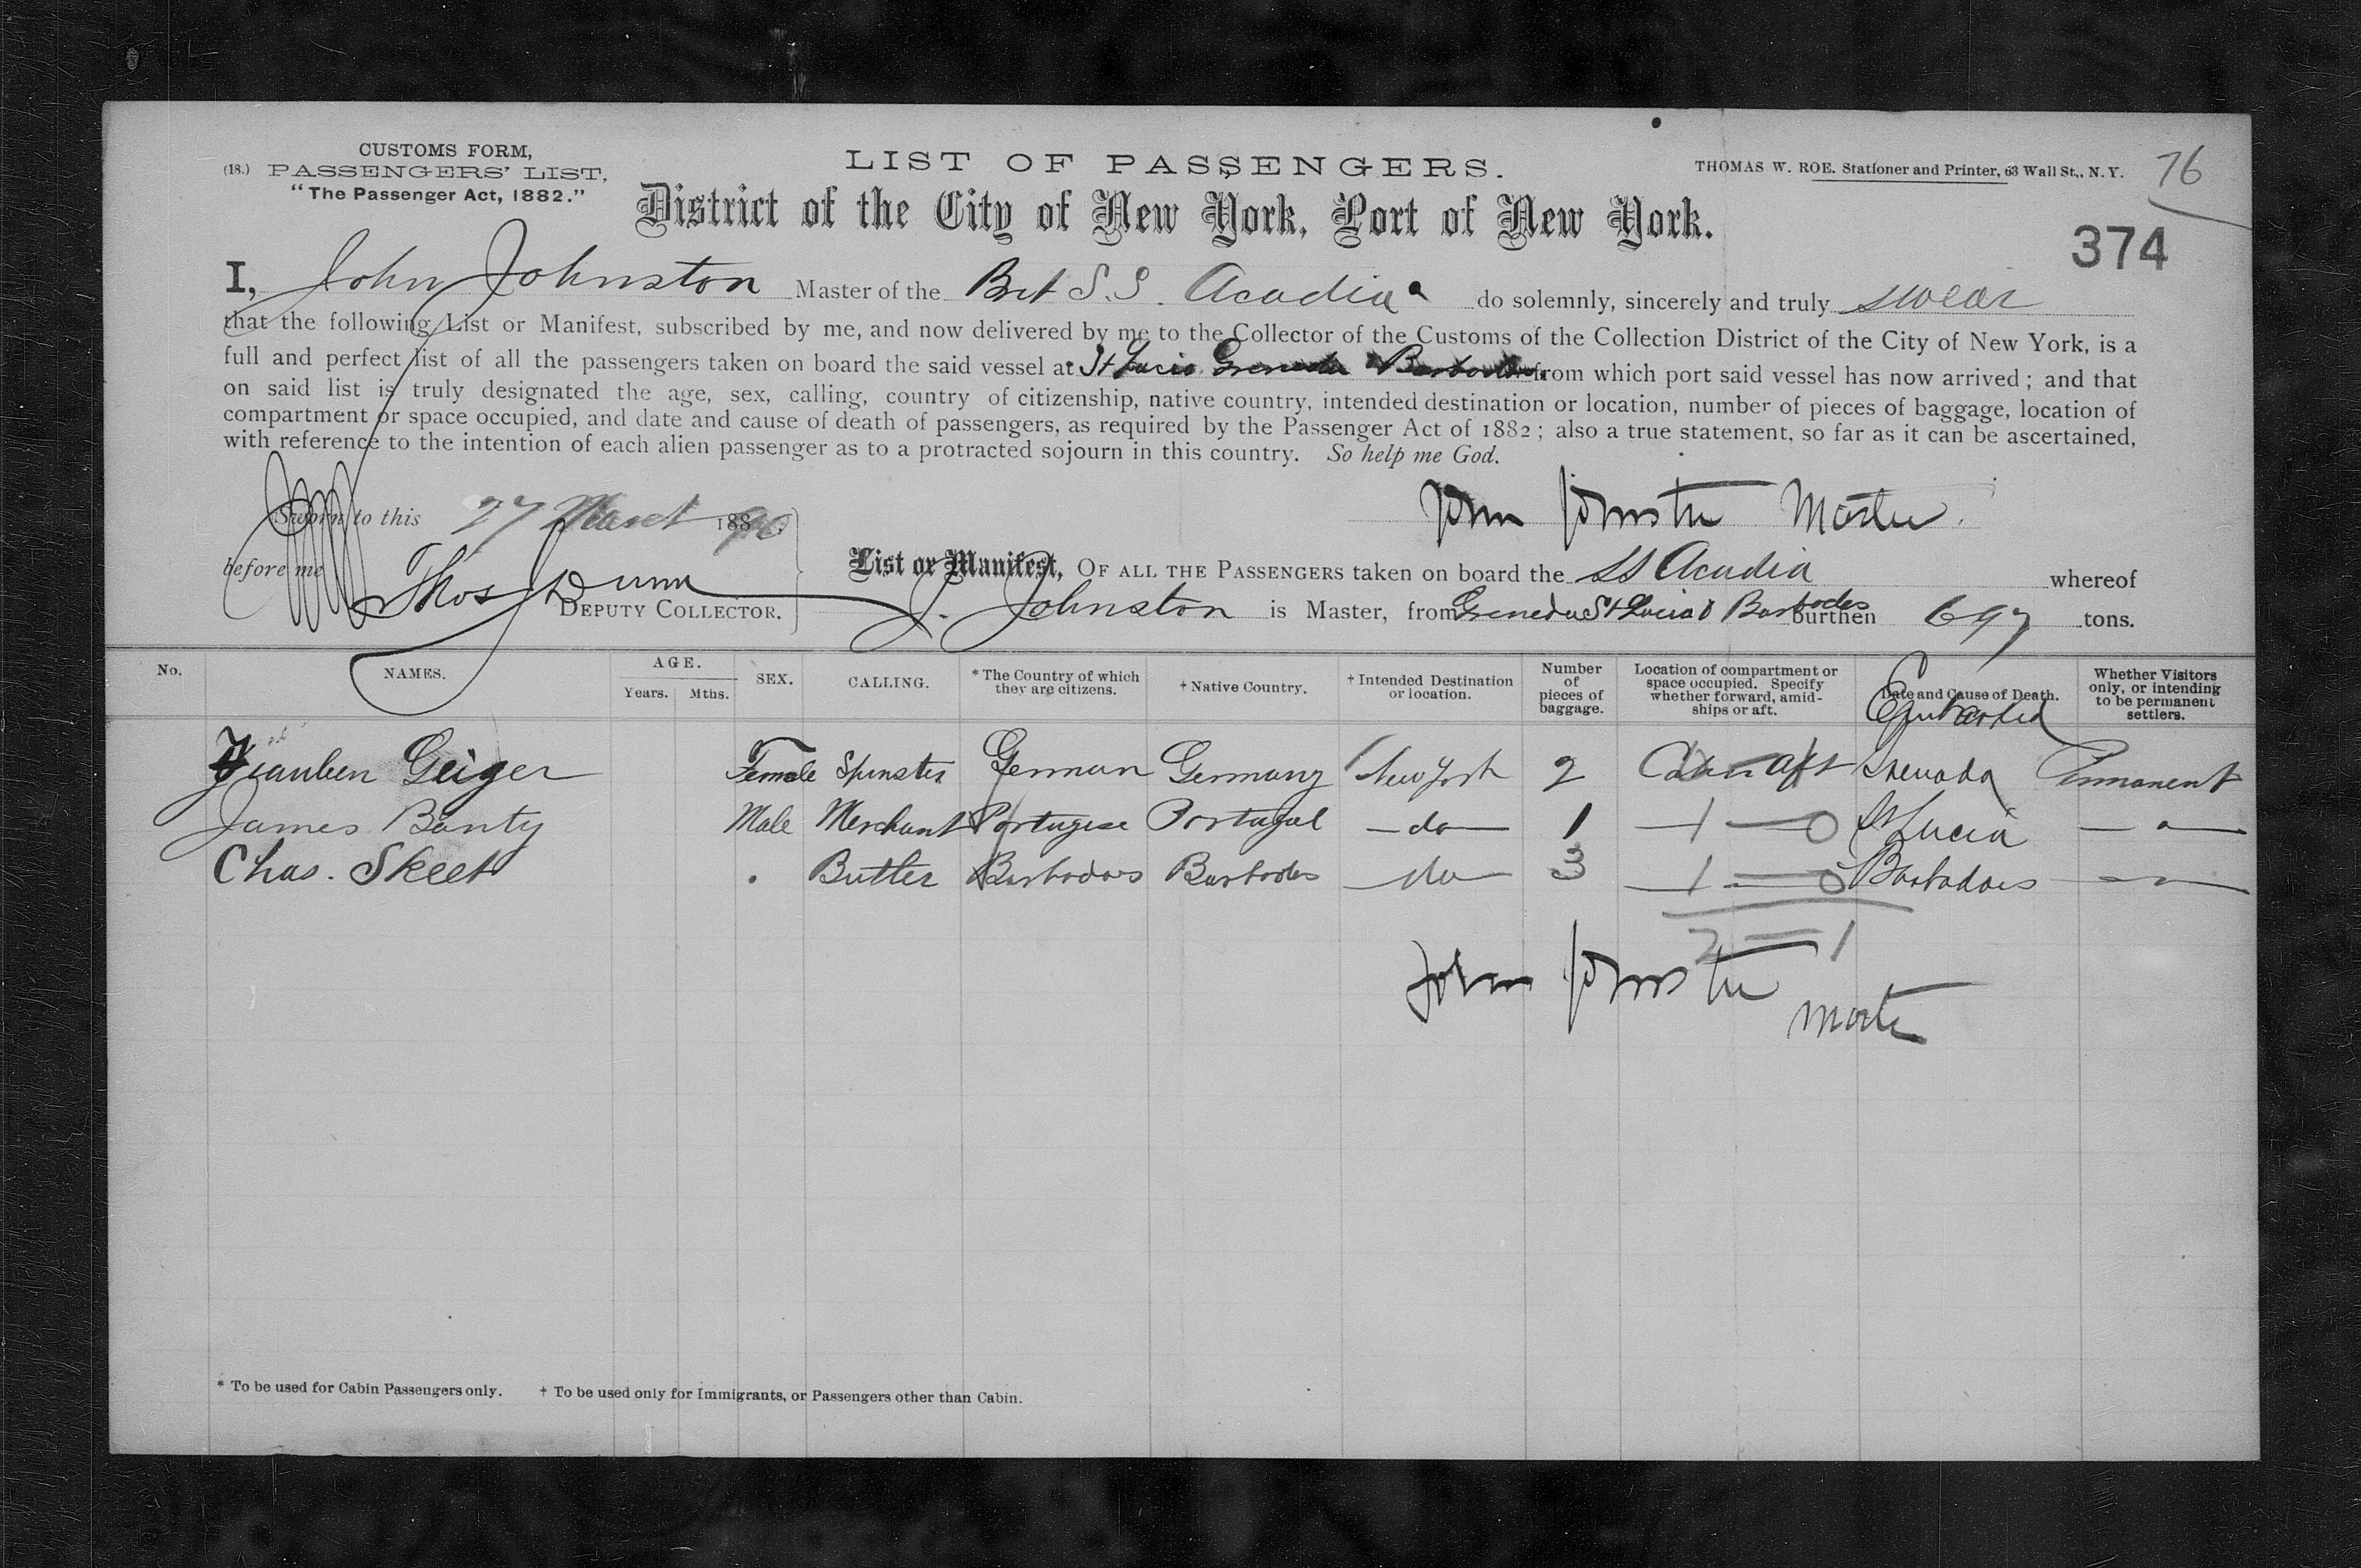 CUSTOMS FORM,
(18.) PASSENGERS' LIST,
"The Passenger Act, 1882."
LIST OF PASSENGERS.
THOMAS W. ROE. Stationer and Printer, 63 Wall St., N. Y.
76
District of the City of New York, Port of New York.
374
I, John Johnston Master of the Brit S.S. Acadia do solemnly, sincerely and truly swear
that the following List or Manifest, subscribed by me, and now delivered by me to the Collector of the Customs of the Collection District of the City of New York, is a
full and perfect list of all the passengers taken on board the said vessel at St Lucia Grenada Barbados from which port said vessel has now arrived; and that
on said list is truly designated the age, sex, calling, country of citizenship, native country, intended destination or location, number of pieces of baggage, location of
compartment or space occupied, and date and cause of death of passengers, as required by the Passenger Act of 1882; also a true statement, so far as it can be ascertained,
with reference to the intention of each alien passenger as to a protracted sojourn in this country. So help me God.
Sworn to this 27 March 1890
John Johnston Master.
before me Thos Dunn
DEPUTY COLLECTOR.
List or Manifest, OF ALL THE PASSENGERS taken on board the SS Acadia whereof
J. Johnston is Master, from Grenada St Lucia & Barbodes burthen 697 tons.
No. NAMES. AGE. Years. Mths. SEX. CALLING. * The Country of which they are citizens. † Native Country. † Intended Destination or location. Number of pieces of baggage. Location of compartment or space occupied. Specify whether forward, amidships or aft. Date and Cause of Death. Embarked Whether Visitors only, or intending to be permanent settlers.
Geiger Female Spinster German Germany New York 2 Cabin aft Grenada Permanent
James Banty Male Merchant Portugese Portugal — do — 1 1 — 0 St Lucia — " —
Chas. Skeet " Butler Barbados Barbados — do — 3 1 — 0 Barbadoes — " —
2 = 1
John Johnston
Master
* To be used for Cabin Passengers only. † To be used only for Immigrants, or Passengers other than Cabin.